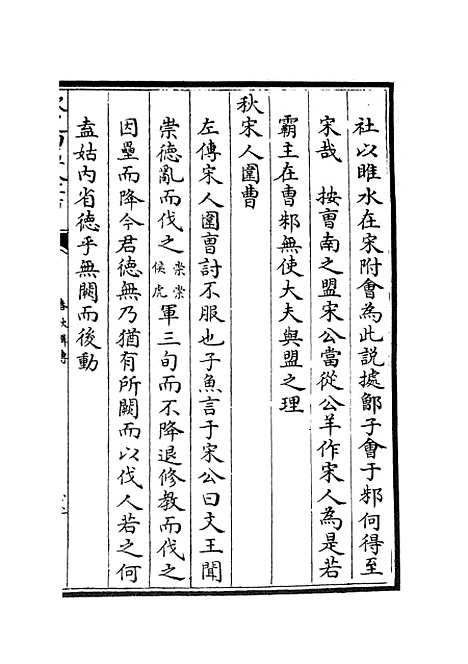 社以睢水在宋附會為此説據鄫子會于邾何得至
宋哉　按曹南之盟宋公當從公羊作宋人為是若
霸主在曹邾無使大夫與盟之理
秋宋人圍曹
左傳宋人圍曹討不服也子魚言于宋公曰文王聞
崇德亂而伐之崇崇侯虎軍三旬而不降退修教而伐之
因壘而降今君德無乃猶有所闕而以伐人若之何
盍姑内省德乎無闕而後動